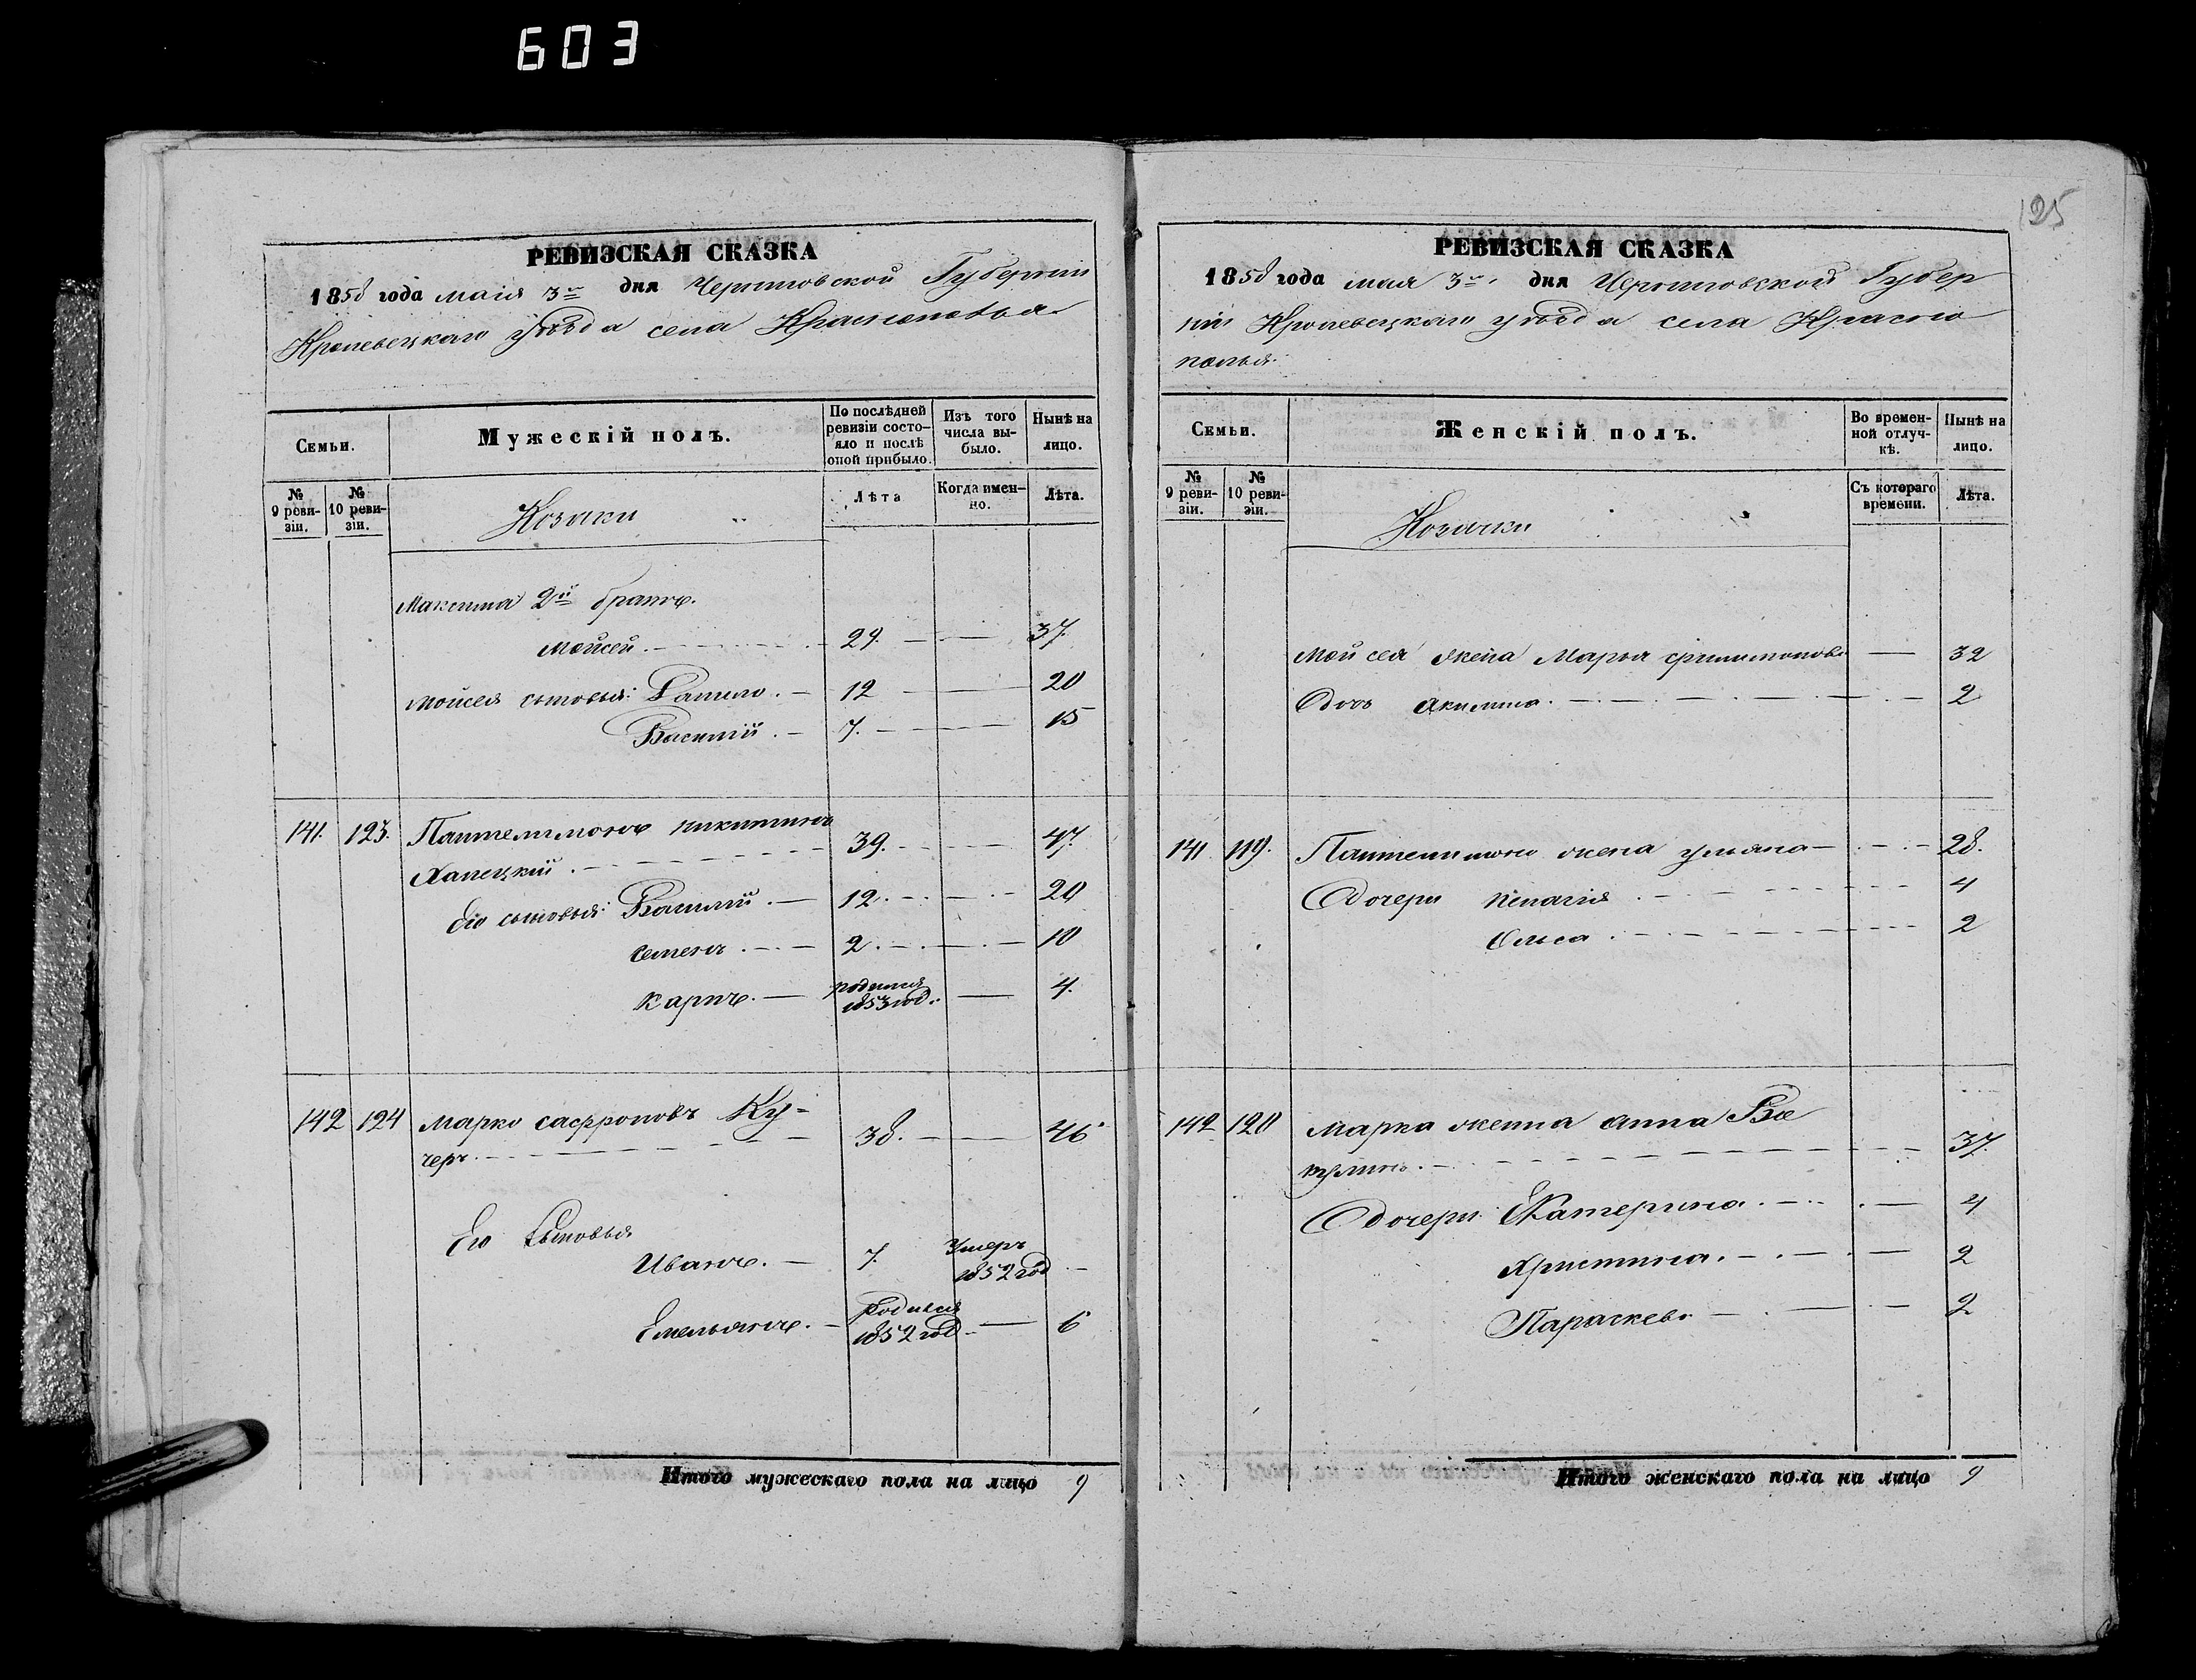 603
125
РЕВИЗСКАЯ СКАЗКА
1858 года маія 3го дня Черниговской Губерніи
Кролевецкаго уѣзда села Краснополья
Семьи.
Мужескій полъ.
По послѣдней ревизіи состояло и послѣ оной прибыло.
Изъ того числа выбыло.
Нынѣ на лицо.
№ 9 ревизіи.
№ 10 ревизіи.
Козаки
Лѣта
Когда именно.
Лѣта.
Максима 2й братъ
Мойсей. 29. 37.
Мойсея сыновья: 12 20
Василій. 7. 15
141. 123. Пантелимонъ Никитинъ
Хапецкій. 39. 47.
Его сыновья: Василій. 12. 20
Семенъ. 2. 10
Карпъ. родился 1853 год. 4.
142 124 Марко Сафроновъ Ку=
черъ. 38. 46
Его Сыновья
Иванъ. 7. Умеръ 1852 год
Емельянъ. родился 1852 год. 6
Итого мужескаго пола на лицо 9
РЕВИЗСКАЯ СКАЗКА
1858 года мая 3го дня Черниговской Губер
ніи Кролевецкаго уѣзда села Красно
полья.
Семьи.
Женскій полъ.
Во временной отлучкѣ.
Нынѣ на лицо.
№ 9 ревизіи.
№ 10 ревизіи.
Козачки
Съ котораго времени.
Лѣта.
Мойсея жена Марья 32
Дочь Акилина. 2
141. 119. Пантелимона жена Ульяна 28.
Дочери Пелагія 4
Ольга. 2
142 120 Марка женна Анна
37.
Дочери: Екатерина. 4
Христина. 2
Параскева 2
Итого женскаго пола на лицо 9